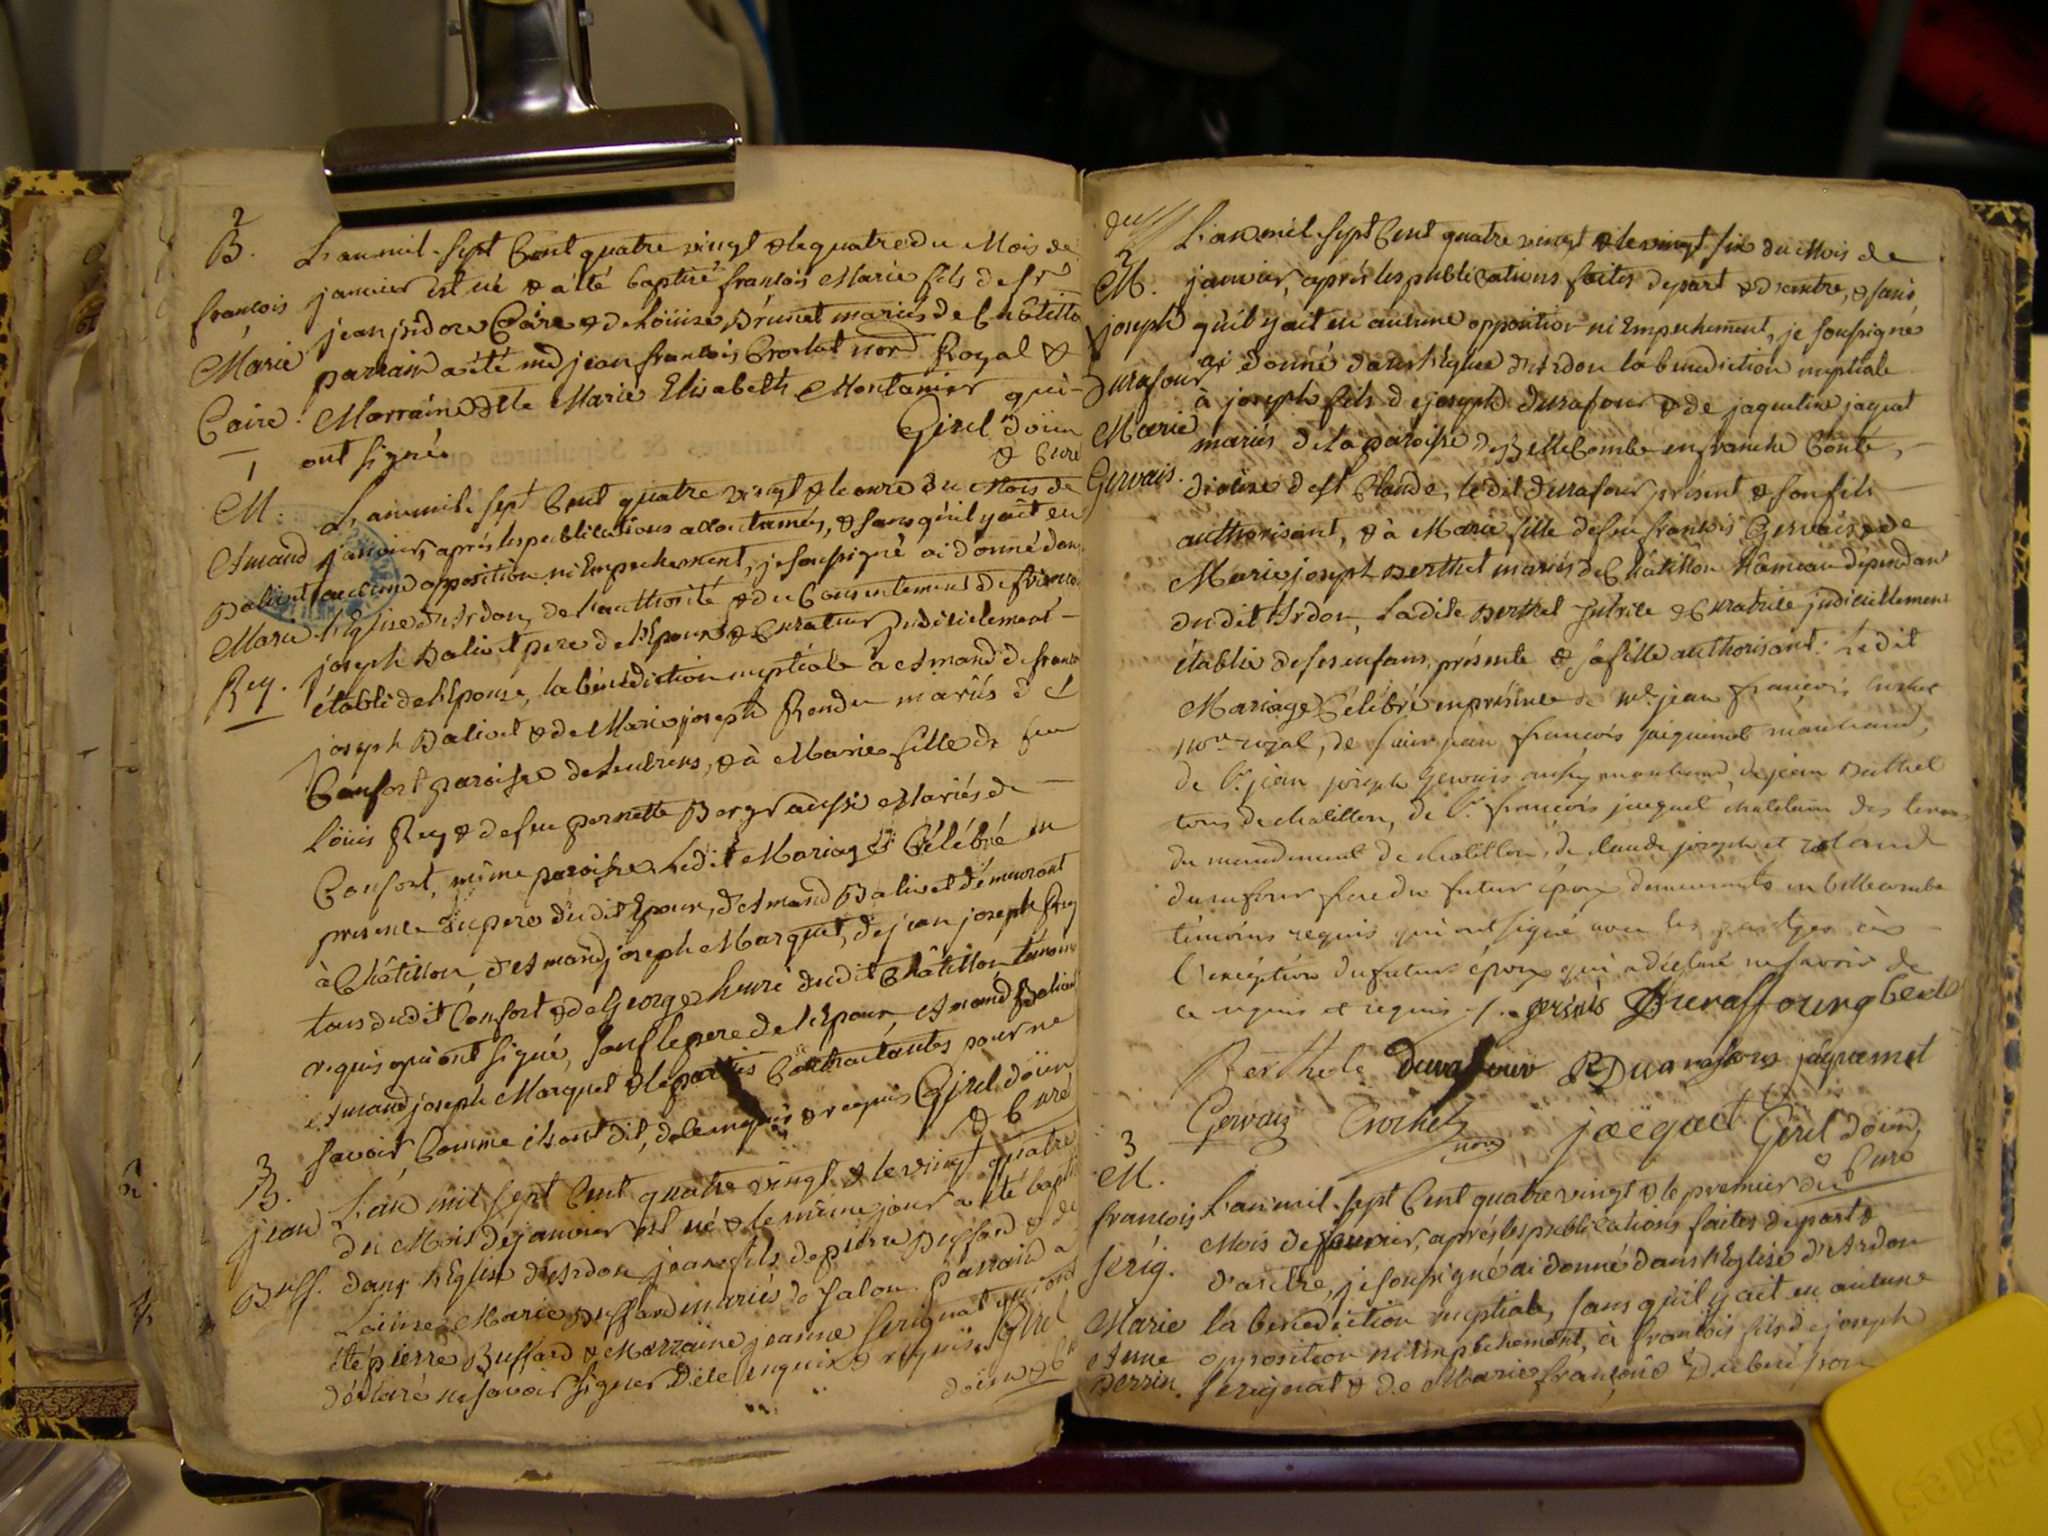 2
B.
françois
Marie
Caire.
L'an mil-sept Cent quatre vingt & le quatre du Mois de
janvier est né & a été baptisé françois Marie fils de sr
jean jsidore Caire & de Loüise Brunet mariés de Chatillo
parrain a été md jean françois Crochet nord Royal &
Marraine dlle Marie Elisabeth Montanier qui-
ont signé Girel doïen
& Curé
1
M.
Amand
Balivet
Marie
Rey.
L'an mil-sept Cent quatre vingt & le onze du Mois de
janvier, après les publications accoutumées, & sans qu'il y ait eu
aucune opposition ni Empechement, je soussigné ai donné dans
l'Eglise d'Ardon, de l'authorité & du Consentement de françois
joseph Balivet pere de l'Epoux & Curateur judiciélement-
établi de l'Epouse, la bénédiction nuptiale à Amand de franço
joseph Balivet & de Marie joseph Rendu mariés de
Confort paroisse de Lentenex, & à Marie fille de feu
Loüis Rey & de feu pernette aussi Mariés de
Confort, même paroisse. Ledit Mariage Célébré en
présence du pere dudit Epoux, d'Amand Balivet démeurant
à Châtillon, d'Amand joseph Marquet, de jean joseph Rey
tous dudit Confort & de George henri dudit Châtillon témoins
requis qui ont signé, sauf le pere de l'Epoux Amand Balivet
Amand joseph Marquet & les parties Contractantes pour ne
savoir, Comme ils ont dit, de le enquis & requis Girel doïen
& Curé
3
B.
jean
Buff.
L'an mil sept Cent quatre vingt & le vingt quatre
du Mois de janvier est né & le même jour a été bapti
dans l'Eglise d'Ardon jean fils de pierre Buffard & de
Loüise Marie Buffard mariés de Salon. parrain a
été pierre Buffard & Marraine jeanne Serignat qui ont
déclaré ne savoir signer De le enquis & requis. Girel
doïen & C
du
2
M.
joseph
Durafour
&
Marie
Gervais.
L'an mil-sept Cent quatre vingt & le vingt six du Mois de
janvier, après les publications faites depart & d'autre, & sans
qu'il y ait eu aucune opposition ni Empechement, je soussigné
ai donné dans l'Eglise d'Ardon la benediction nuptiale
à joseph fils de joseph durafour & de jaqueline jaquet
mariés de la paroisse de Bellecombe en franche Conté,-
diocèse de st Claude, le dit durafour présent & son fils
authorisant, & à Marie fille de feu françois Gervais & de
Marie joseph Berthet mariés de Châtillon Hameau dépendan
dudit Ardon, Ladite Berthet Tutrice & Curatrice judiciellemen
établie de ses enfans, présente & sa fille authorisant. Ledit
Mariage Célébré en présence de Mr jean françois crochet
nore royal, de sieur jean françois jaiqueinot marchand,
de Sr jean joseph Gervais aussy marchand, de jean Buthel
tous de chatillon, de Sr françois jacquet chatelain des terres
du mandement de chatillon, de claude joseph et roland
durafour frere du futur époux demeurants en bellecombe
témoins requis qui ont signé avec les parties à
l'exception du futur époux qui a déclaré ne savoir de
ce enquis et requis ./. gervais Duraffourg berthet
Berthet durafour R Durafour jaquemet
Gervaiz Crochet nore jacquet Girel doïen,
& Curé
3
M.
françois
Serig.
Marie
Anne
perrin.
L'an mil-sept Cent quatre vingt & le premier du
Mois de fevrier, après les publications faites de part &
d'autre, je soussigné ai donné dans l'Eglise d'Ardon
la benediction nuptiale, sans qu'il y ait eu aucune
opposition ni Empechement, à françois fils de joseph
Serignat & de Marie françoise